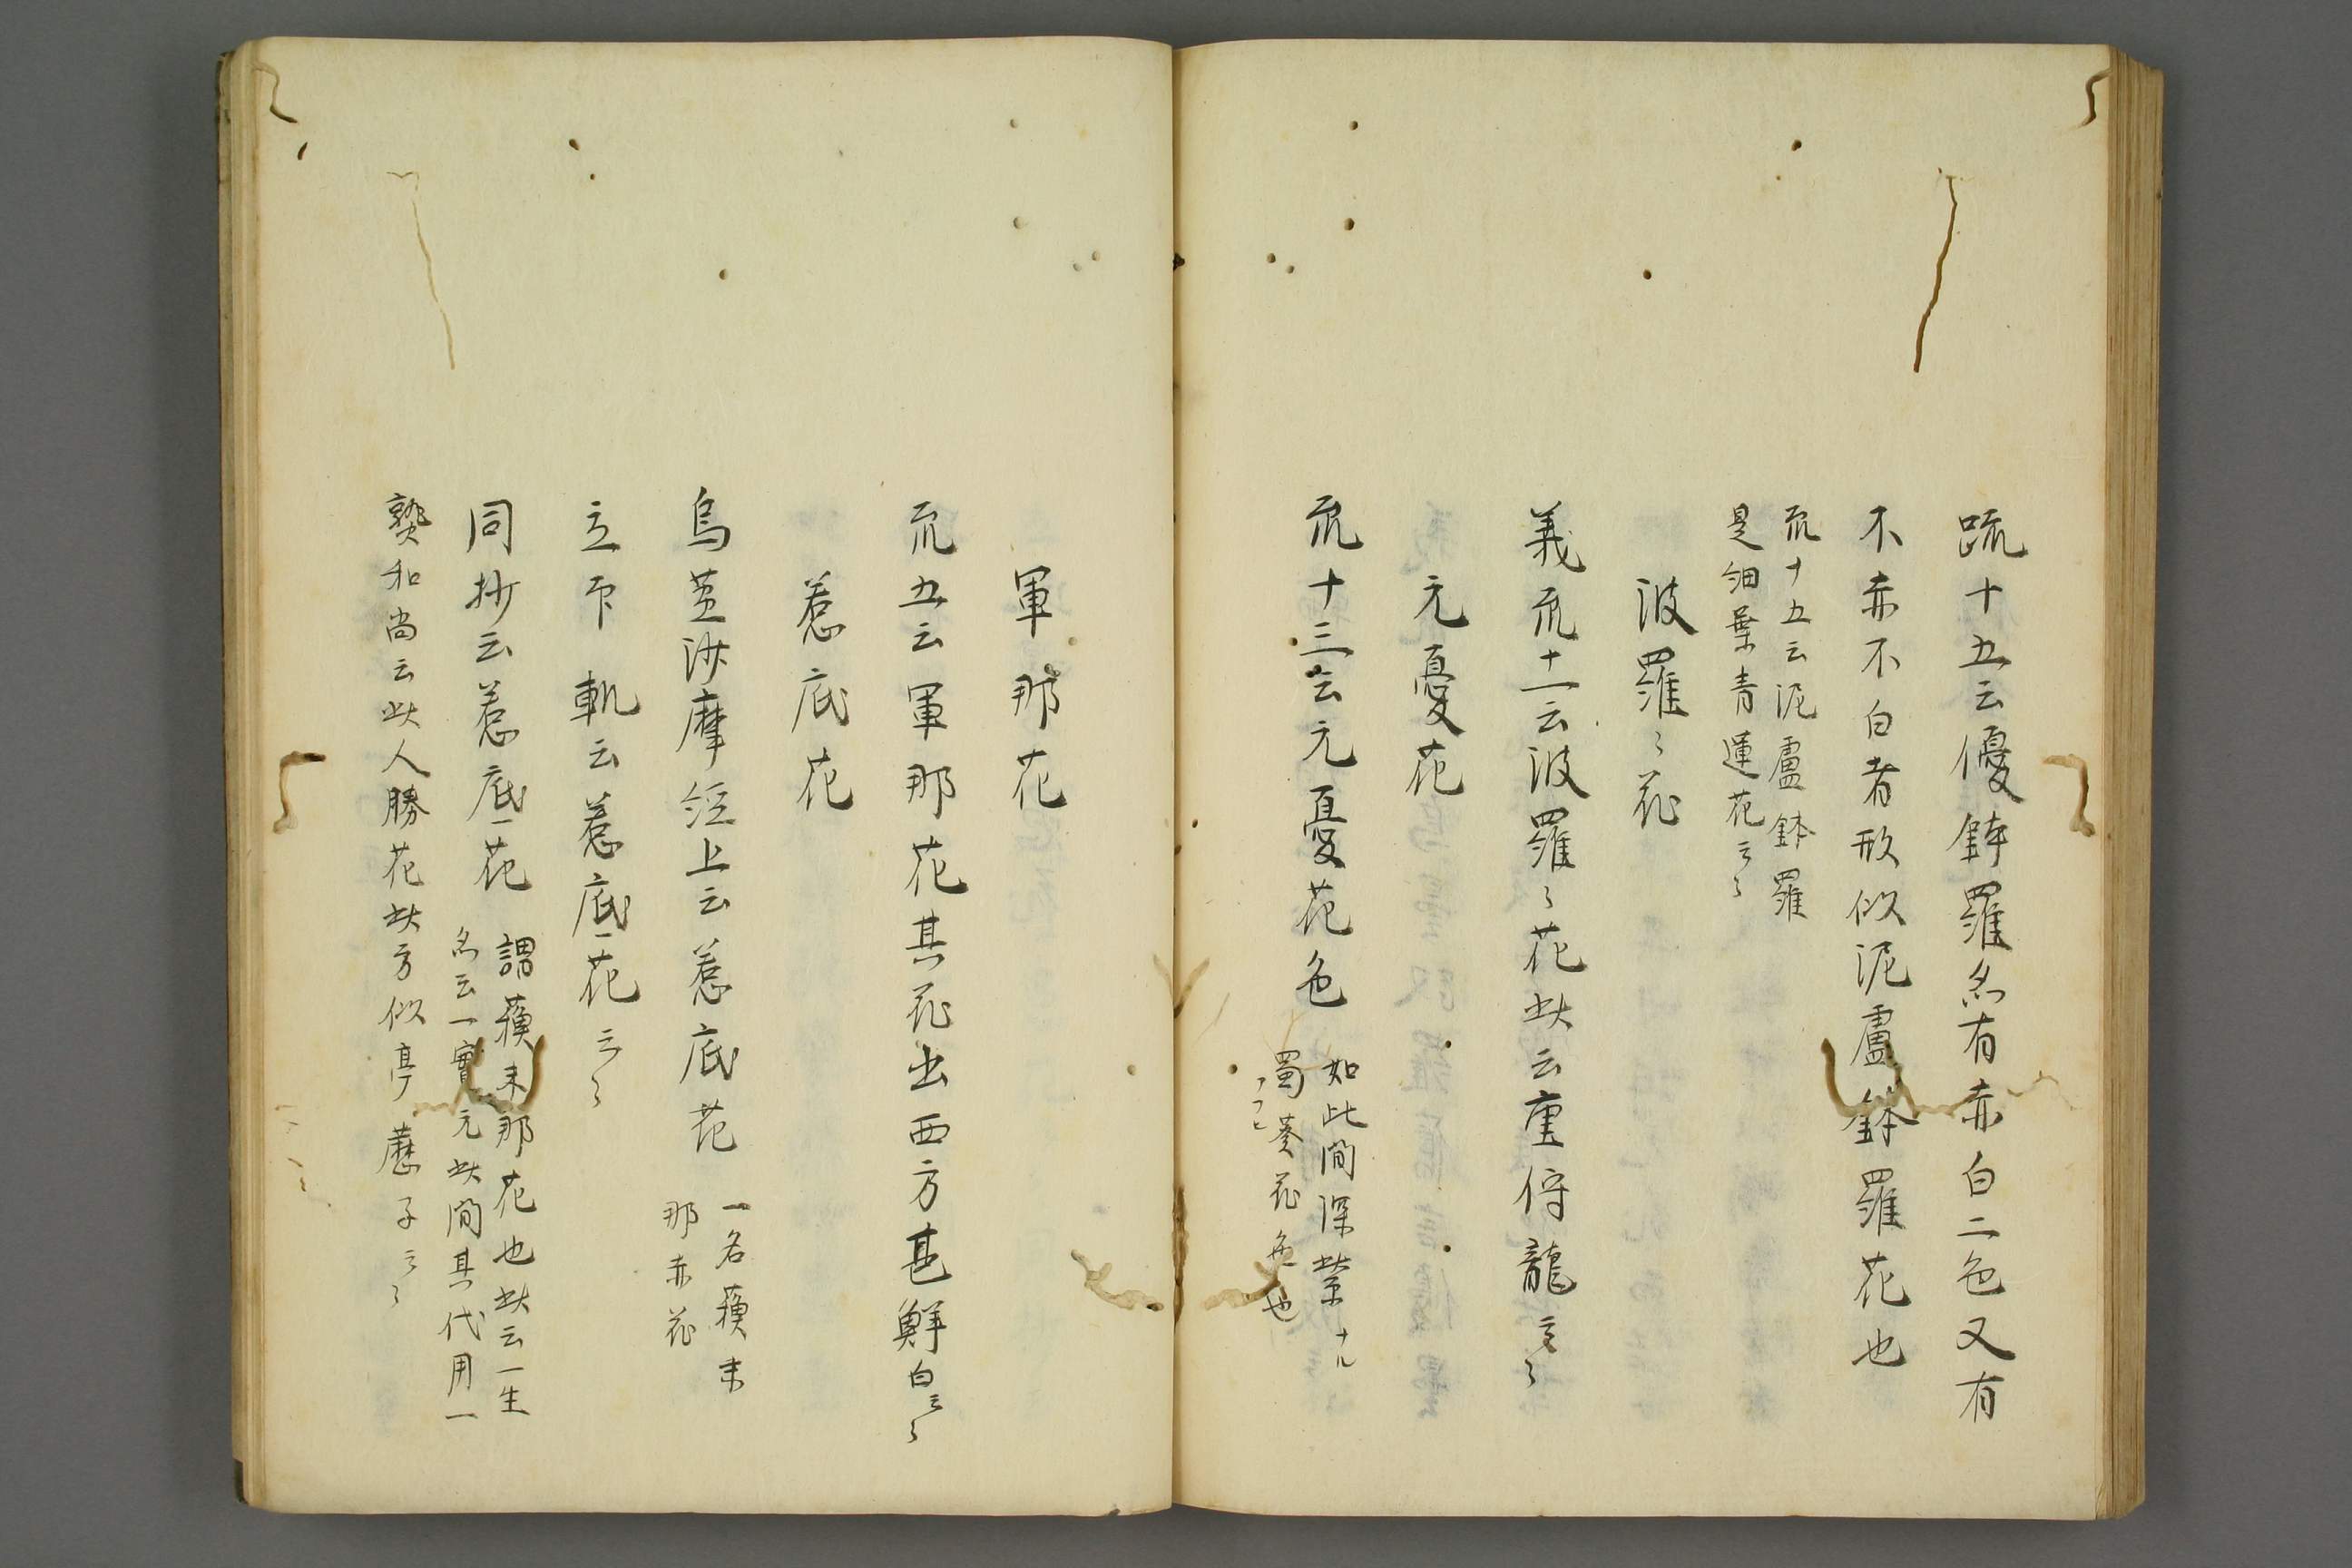 疏十五云優鉢羅名有赤白二色又有
不赤不白者形似泥盧鉢羅花也
㐬十五云泥盧鉢羅
是細葉青蓮花云〻
波羅〻花
義㐬十一云波羅〻花此云重俗龍文〻
无憂花
㐬十三云无憂花色
如此間深紫ナル
蜀葵花色也
軍那花
㐬五云軍那花其花出西方甚鮮白云〻
惹底花
烏蒭沙摩経上云惹底花
一名蘋末
那赤花
立印軌云惹底花云〻
同抄云惹底花
謂蘋末那花也此云一生
名云一實元此間其代用一
和尚云此人勝花此方似亭藶子云〻